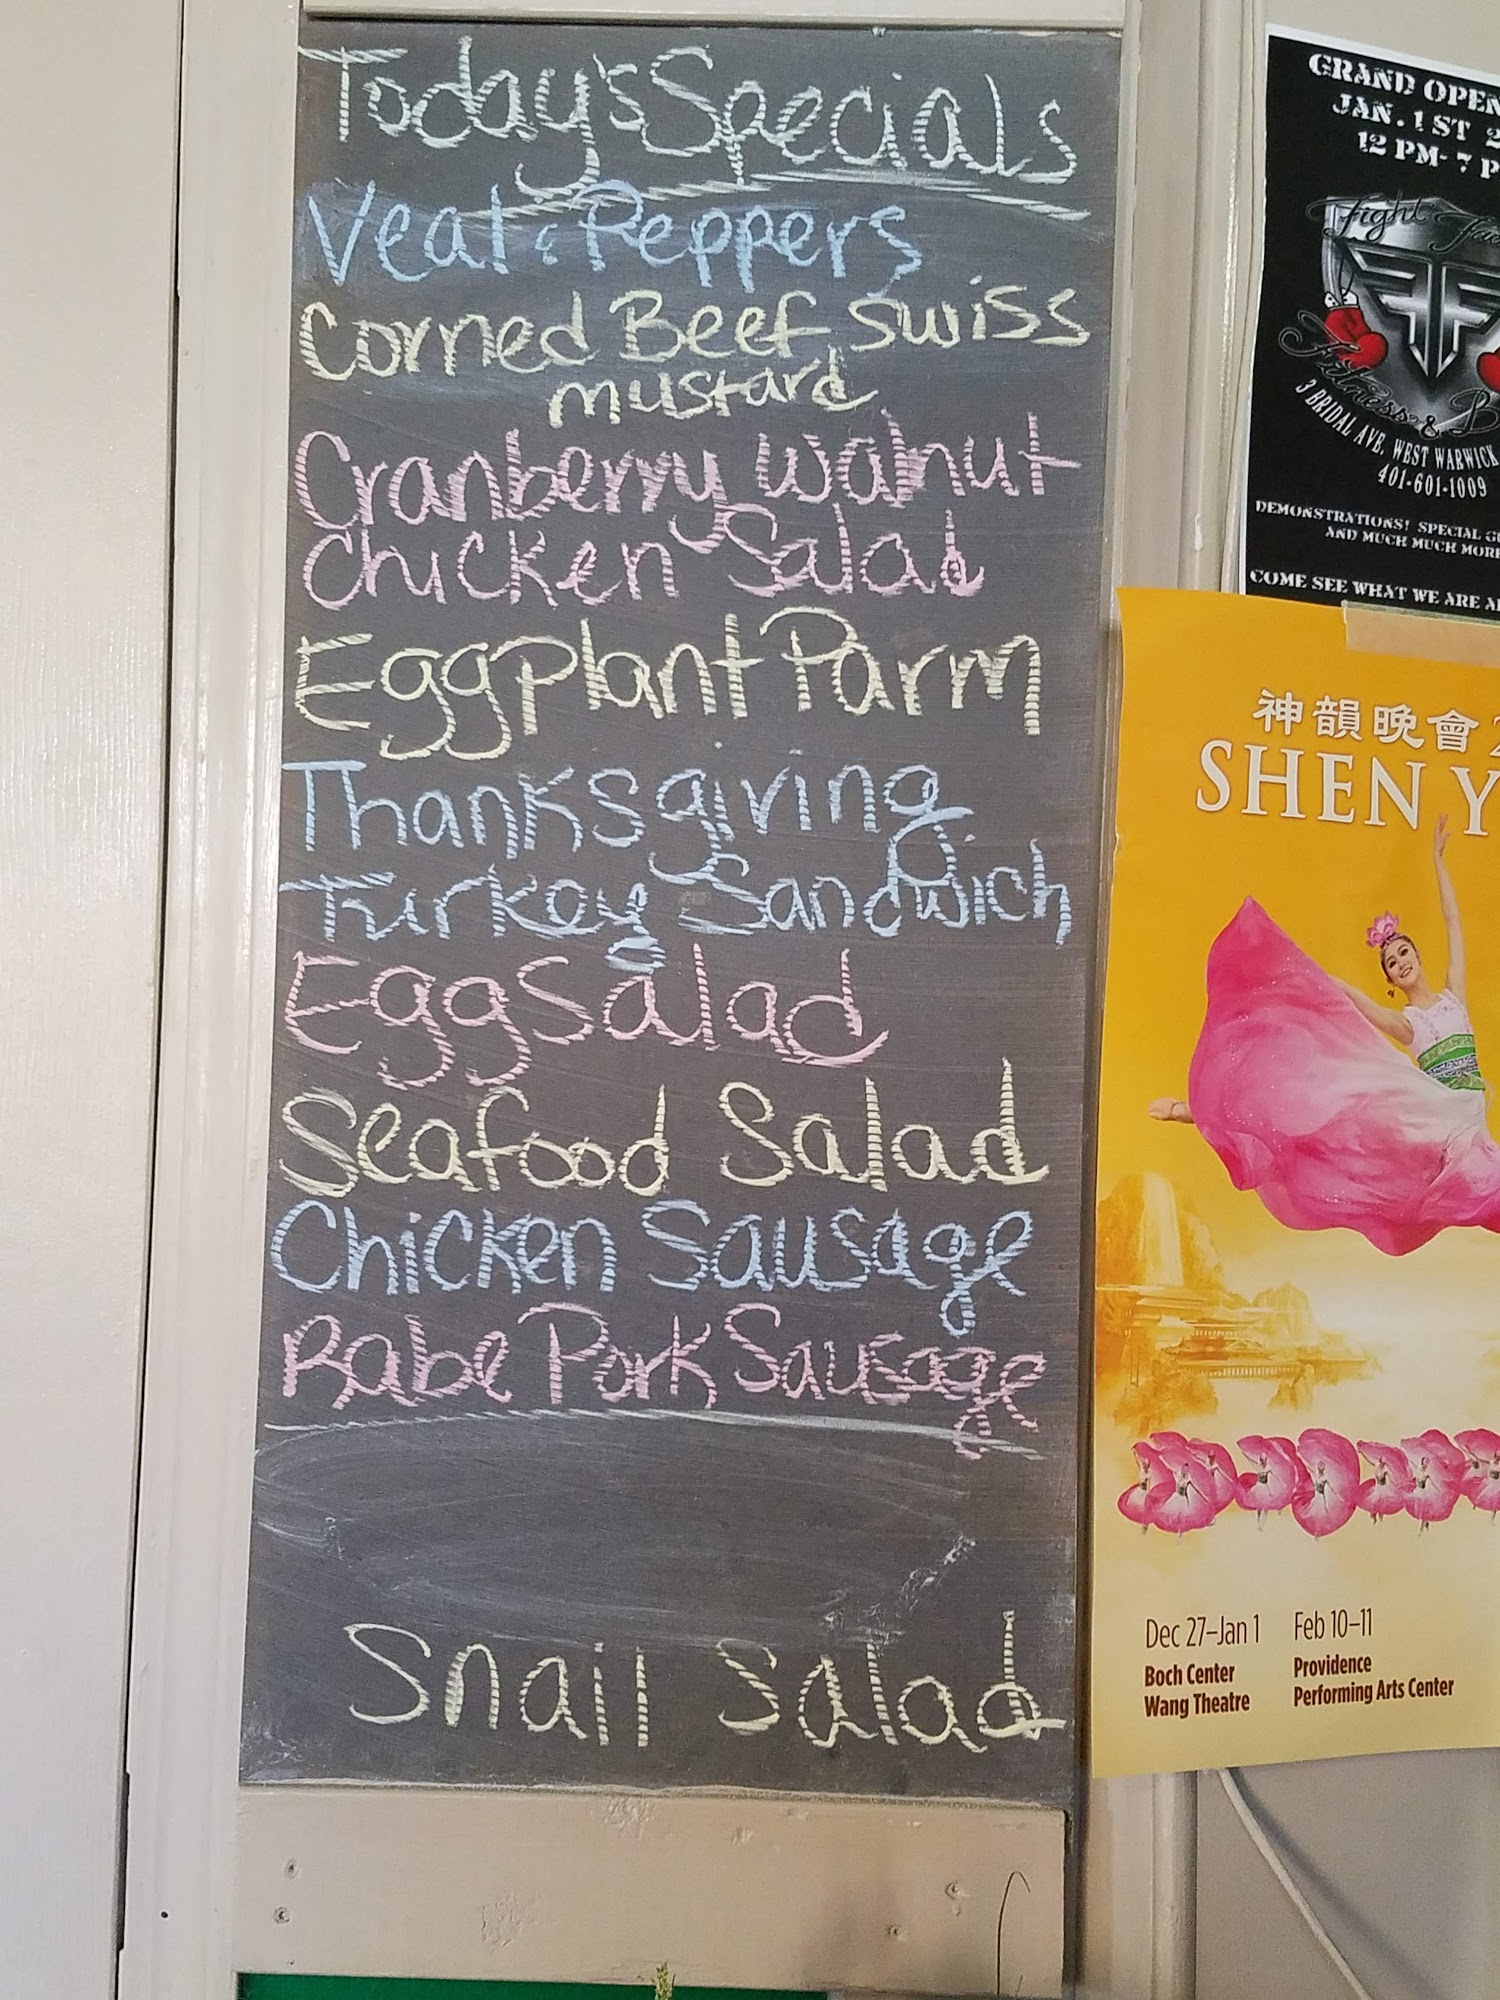 Today's Specials
Veal & Peppers
Corned Beef Swiss
mustard
Cranberry Walnut
Chicken Salad
Eggplant Parm
Thanksgiving
Turkey Sandwich
Egg Salad
Seafood Salad
Chicken Sausage
Rabe Pork Sausage
Snail Salad
GRAND OPEN
JAN. 1ST 2
12 PM- 7 P
Fight
FF
Fitness & B
3 BRIDAL AVE. WEST WARWICK
401-601-1009
DEMONSTRATIONS! SPECIAL GU
AND MUCH MUCH MORE
COME SEE WHAT WE ARE A
神韻晚會 2
SHEN Y
Dec 27–Jan 1
Boch Center
Wang Theatre
Feb 10–11
Providence
Performing Arts Center